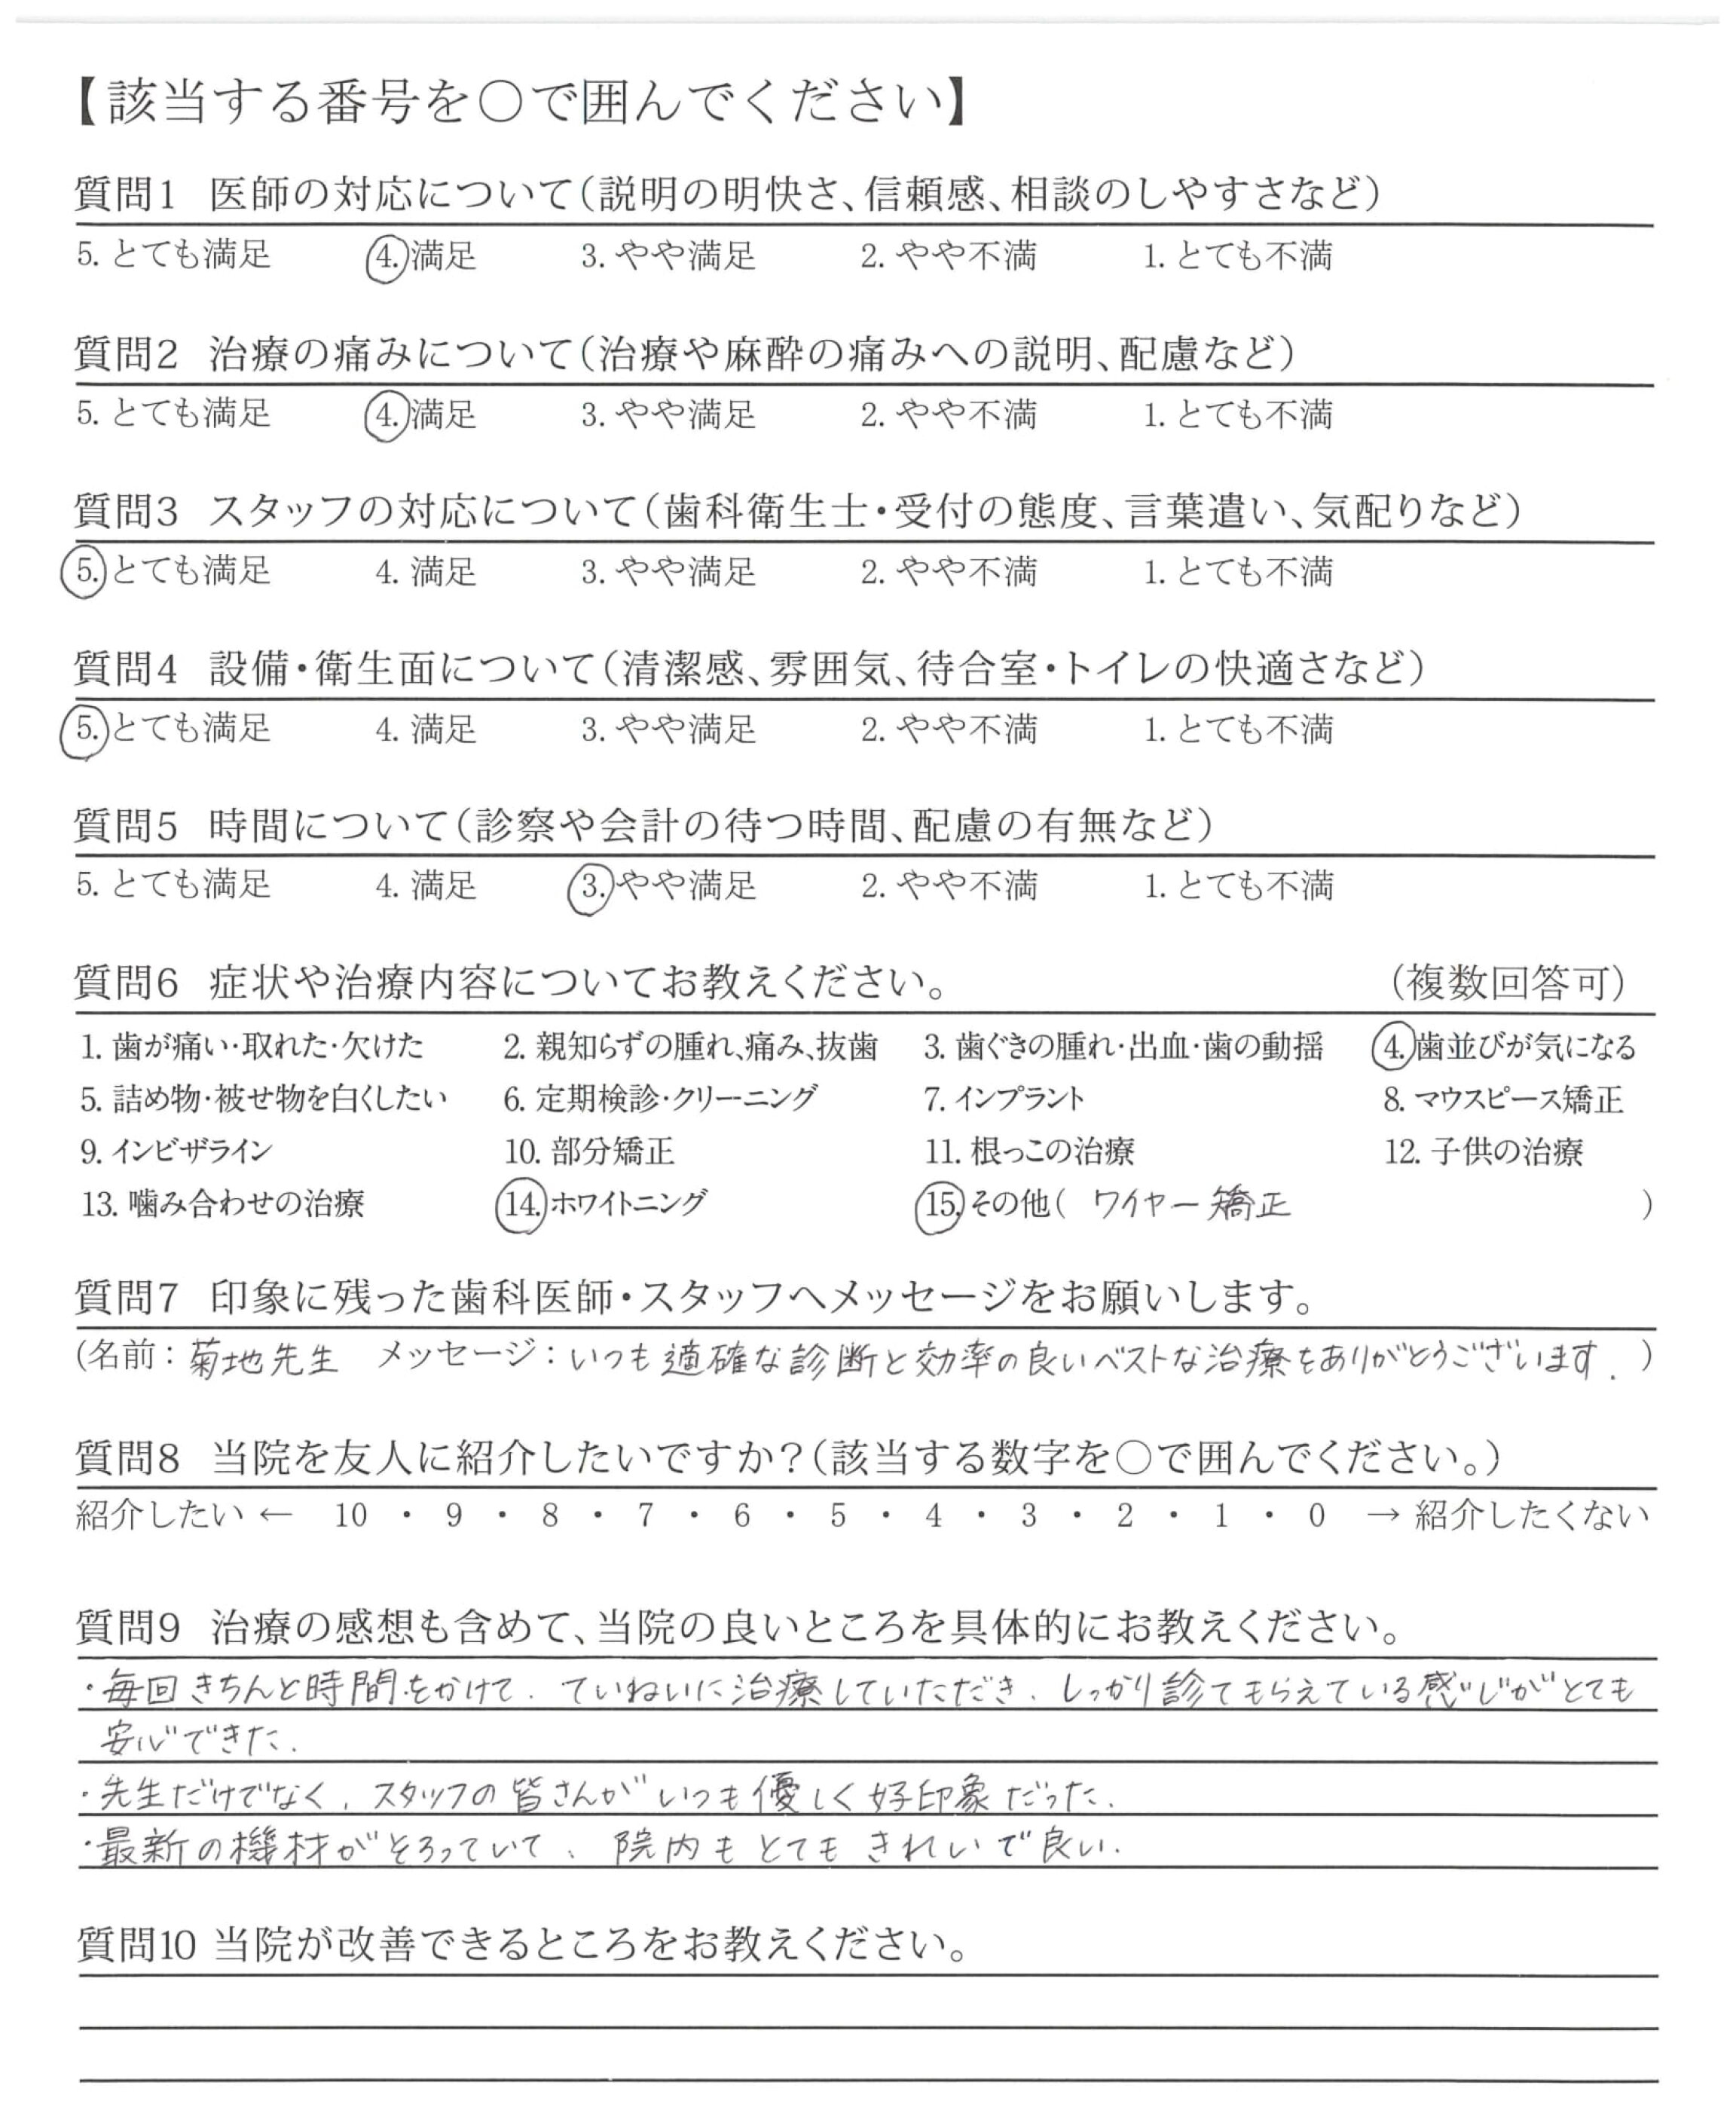 【該当する番号を○で囲んでください】
質問1 医師の対応について(説明の明快さ、信頼感、相談のしやすさなど)
5. とても満足 4. 満足 3. やや満足 2. やや不満 1. とても不満
質問2 治療の痛みについて(治療や麻酔の痛みへの説明、配慮など)
5. とても満足 4. 満足 3. やや満足 2. やや不満 1. とても不満
質問3 スタッフの対応について(歯科衛生士・受付の態度、言葉遣い、気配りなど)
5. とても満足 4. 満足 3. やや満足 2. やや不満 1. とても不満
質問4 設備・衛生面について(清潔感、雰囲気、待合室・トイレの快適さなど)
5. とても満足 4. 満足 3. やや満足 2. やや不満 1. とても不満
質問5 時間について(診察や会計の待つ時間、配慮の有無など)
5. とても満足 4. 満足 3. やや満足 2. やや不満 1. とても不満
質問6 症状や治療内容についてお教えください。 (複数回答可)
1. 歯が痛い・取れた・欠けた 2. 親知らずの腫れ、痛み、抜歯 3. 歯ぐきの腫れ・出血・歯の動揺 4. 歯並びが気になる
5. 詰め物・被せ物を白くしたい 6. 定期検診・クリーニング 7. インプラント 8. マウスピース矯正
9. インビザライン 10. 部分矯正 11. 根っこの治療 12. 子供の治療
13. 噛み合わせの治療 14. ホワイトニング 15. その他( ワイヤー矯正 )
質問7 印象に残った歯科医師・スタッフへメッセージをお願いします。
(名前：菊地先生 メッセージ：いつも適確な診断と効率の良いベストな治療をありがとうございます. )
質問8 当院を友人に紹介したいですか？(該当する数字を○で囲んでください。)
紹介したい ← 10 ・ 9 ・ 8 ・ 7 ・ 6 ・ 5 ・ 4 ・ 3 ・ 2 ・ 1 ・ 0 → 紹介したくない
質問9 治療の感想も含めて、当院の良いところを具体的にお教えください。
・毎回きちんと時間をかけて、ていねいに治療していただき、しっかり診てもらえている感じがとても
安心できた.
・先生だけでなく、スタッフの皆さんがいつも優しく好印象だった.
・最新の機材がそろっていて、院内もとてもきれいで良い.
質問10 当院が改善できるところをお教えください。